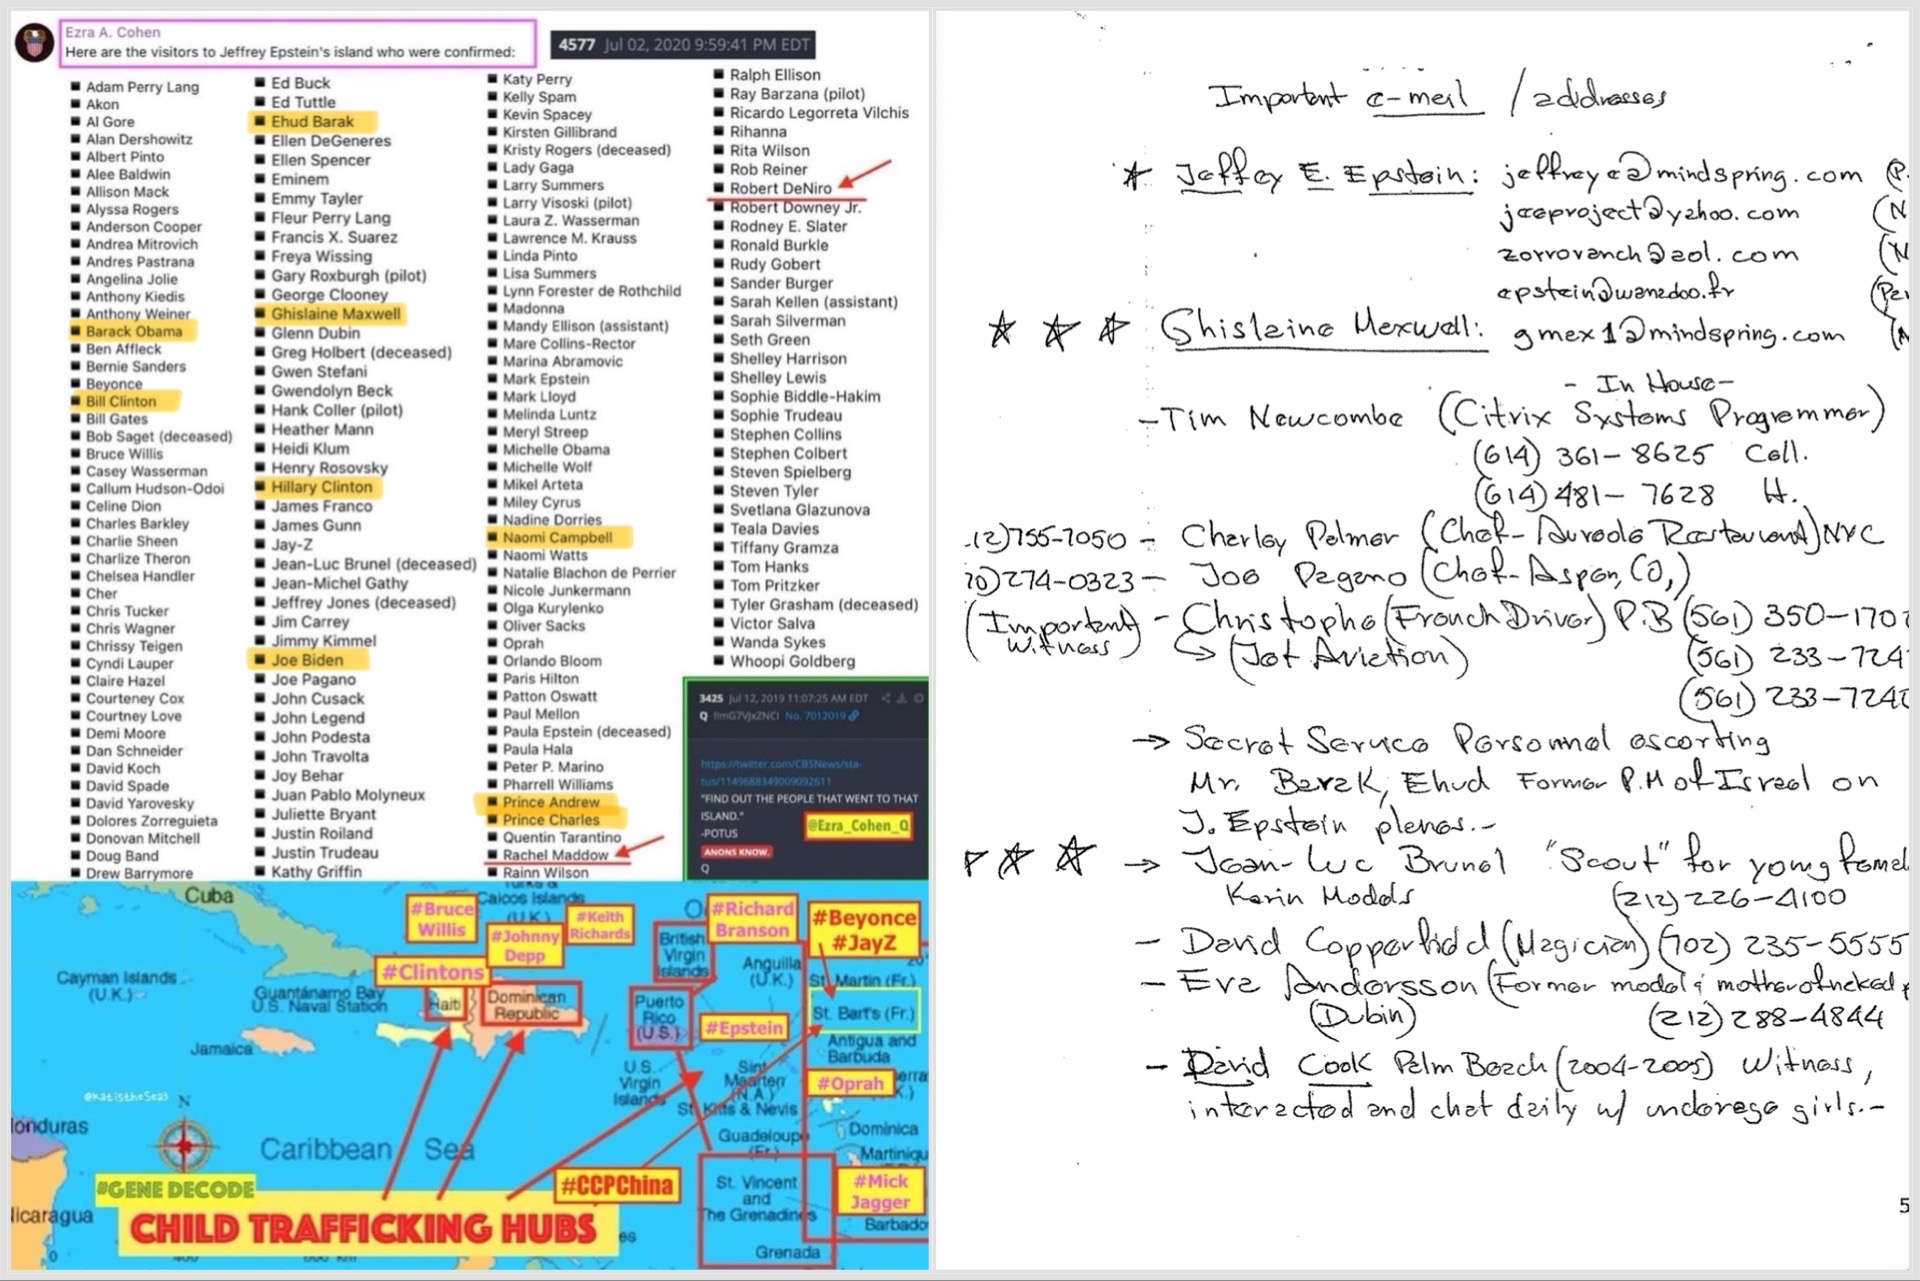 Ezra A. Cohen
Here are the visitors to Jeffrey Epstein's island who were confirmed:
4577 Jul 02, 2020 9:59:41 PM EDT
Adam Perry Lang
Akon
Al Gore
Alan Dershowitz
Albert Pinto
Alee Baldwin
Allison Mack
Alyssa Rogers
Anderson Cooper
Andrea Mitrovich
Andres Pastrana
Angelina Jolie
Anthony Kiedis
Anthony Weiner
Barack Obama
Ben Affleck
Bernie Sanders
Beyonce
Bill Clinton
Bill Gates
Bob Saget (deceased)
Bruce Willis
Casey Wasserman
Callum Hudson-Odoi
Celine Dion
Charles Barkley
Charlie Sheen
Charlize Theron
Chelsea Handler
Cher
Chris Tucker
Chris Wagner
Chrissy Teigen
Cyndi Lauper
Claire Hazel
Courteney Cox
Courtney Love
Demi Moore
Dan Schneider
David Koch
David Spade
David Yarovesky
Dolores Zorreguieta
Donovan Mitchell
Doug Band
Drew Barrymore
Ed Buck
Ed Tuttle
Ehud Barak
Ellen DeGeneres
Ellen Spencer
Eminem
Emmy Tayler
Fleur Perry Lang
Francis X. Suarez
Freya Wissing
Gary Roxburgh (pilot)
George Clooney
Ghislaine Maxwell
Glenn Dubin
Greg Holbert (deceased)
Gwen Stefani
Gwendolyn Beck
Hank Coller (pilot)
Heather Mann
Heidi Klum
Henry Rosovsky
Hillary Clinton
James Franco
James Gunn
Jay-Z
Jean-Luc Brunel (deceased)
Jean-Michel Gathy
Jeffrey Jones (deceased)
Jim Carrey
Jimmy Kimmel
Joe Biden
Joe Pagano
John Cusack
John Legend
John Podesta
John Travolta
Joy Behar
Juan Pablo Molyneux
Juliette Bryant
Justin Roiland
Justin Trudeau
Kathy Griffin
Katy Perry
Kelly Spam
Kevin Spacey
Kirsten Gillibrand
Kristy Rogers (deceased)
Lady Gaga
Larry Summers
Larry Visoski (pilot)
Laura Z. Wasserman
Lawrence M. Krauss
Linda Pinto
Lisa Summers
Lynn Forester de Rothchild
Madonna
Mandy Ellison (assistant)
Mare Collins-Rector
Marina Abramovic
Mark Epstein
Mark Lloyd
Melinda Luntz
Meryl Streep
Michelle Obama
Michelle Wolf
Mikel Arteta
Miley Cyrus
Nadine Dorries
Naomi Campbell
Naomi Watts
Natalie Blachon de Perrier
Nicole Junkermann
Olga Kurylenko
Oliver Sacks
Oprah
Orlando Bloom
Paris Hilton
Patton Oswatt
Paul Mellon
Paula Epstein (deceased)
Paula Hala
Peter P. Marino
Pharrell Williams
Prince Andrew
Prince Charles
Quentin Tarantino
Rachel Maddow
Rainn Wilson
Ralph Ellison
Ray Barzana (pilot)
Ricardo Legorreta Vilchis
Rihanna
Rita Wilson
Rob Reiner
Robert DeNiro
Robert Downey Jr.
Rodney E. Slater
Ronald Burkle
Rudy Gobert
Sander Burger
Sarah Kellen (assistant)
Sarah Silverman
Seth Green
Shelley Harrison
Shelley Lewis
Sophie Biddle-Hakim
Sophie Trudeau
Stephen Collins
Stephen Colbert
Steven Spielberg
Steven Tyler
Svetlana Glazunova
Teala Davies
Tiffany Gramza
Tom Hanks
Tom Pritzker
Tyler Grasham (deceased)
Victor Salva
Wanda Sykes
Whoopi Goldberg
3425 Jul 12, 2019 11:07:25 AM EDT
Q !!mG7VJxZNCI No. 7012019
https://twitter.com/CBSNews/sta-
tus/1149688349009092611
"FIND OUT THE PEOPLE THAT WENT TO THAT
ISLAND."
-POTUS
@Ezra_Cohen_Q
ANONS KNOW.
Q
Cuba
Caicos Islands
(U.K.)
#Bruce
Willis
#Johnny
Depp
#Keith
Richards
#Richard
Branson
#Beyonce
#JayZ
#Clintons
British
Virgin
Islands
Cayman Islands
(U.K.)
Guantánamo Bay
U.S. Naval Station
Haiti
Dominican
Republic
Puerto
Rico
(U.S.)
Anguilla
(U.K.)
St. Martin (Fr.)
St. Bart's (Fr.)
#Epstein
Jamaica
Antigua and
Barbuda
U.S.
Virgin
Islands
Sint
Maarten
(N.A.)
#Oprah
St. Kitts & Nevis
@KatistheSea3
N
Guadeloupe
(Fr.)
Dominica
Martiniqu
Honduras
Caribbean Sea
#GENE DECODE
#CCPChina
St. Vincent
and
The Grenadines
#Mick
Jagger
Barbado
Nicaragua
CHILD TRAFFICKING HUBS
Grenada
0
Important e-mail / addresses
Jeffey E. Epstein: jeffreye@mindspring.com (P.
jeeproject@yahoo.com (N
zorroranch@aol.com (N
epstein@wanadoo.fr (Par
Ghislaine Maxwell: gmax1@mindspring.com (N
- In House -
- Tim Newcombe (Citrix Systems Programmer)
(614) 361-8625 Cell.
(614) 481-7628 H.
12)755-7050 - Charley Palmer (Chef- Aureole Restaurant) NYC
70)274-0323 - Joe Pagano (Chef- Aspen, CO,)
(Important Witness) - Christophe (French Driver) P.B (561) 350-170
(Jet Aviation) (561) 233-724
(561) 233-7240
→ Secret Service Personnel escorting
Mr. Barak, Ehud Former P.M of Israel on
J. Epstein planes.-
→ Jean-Luc Brunel "Scout" for young femal
Karin Models (212) 226-4100
- David Copperfield (Magician) (702) 235-5555
- Eva Andersson (Former model & mother of naked
(Dubin) (212) 288-4844
- David Cook Palm Beach (2004-2005) Witness,
interacted and chat daily w/ underage girls.-
5